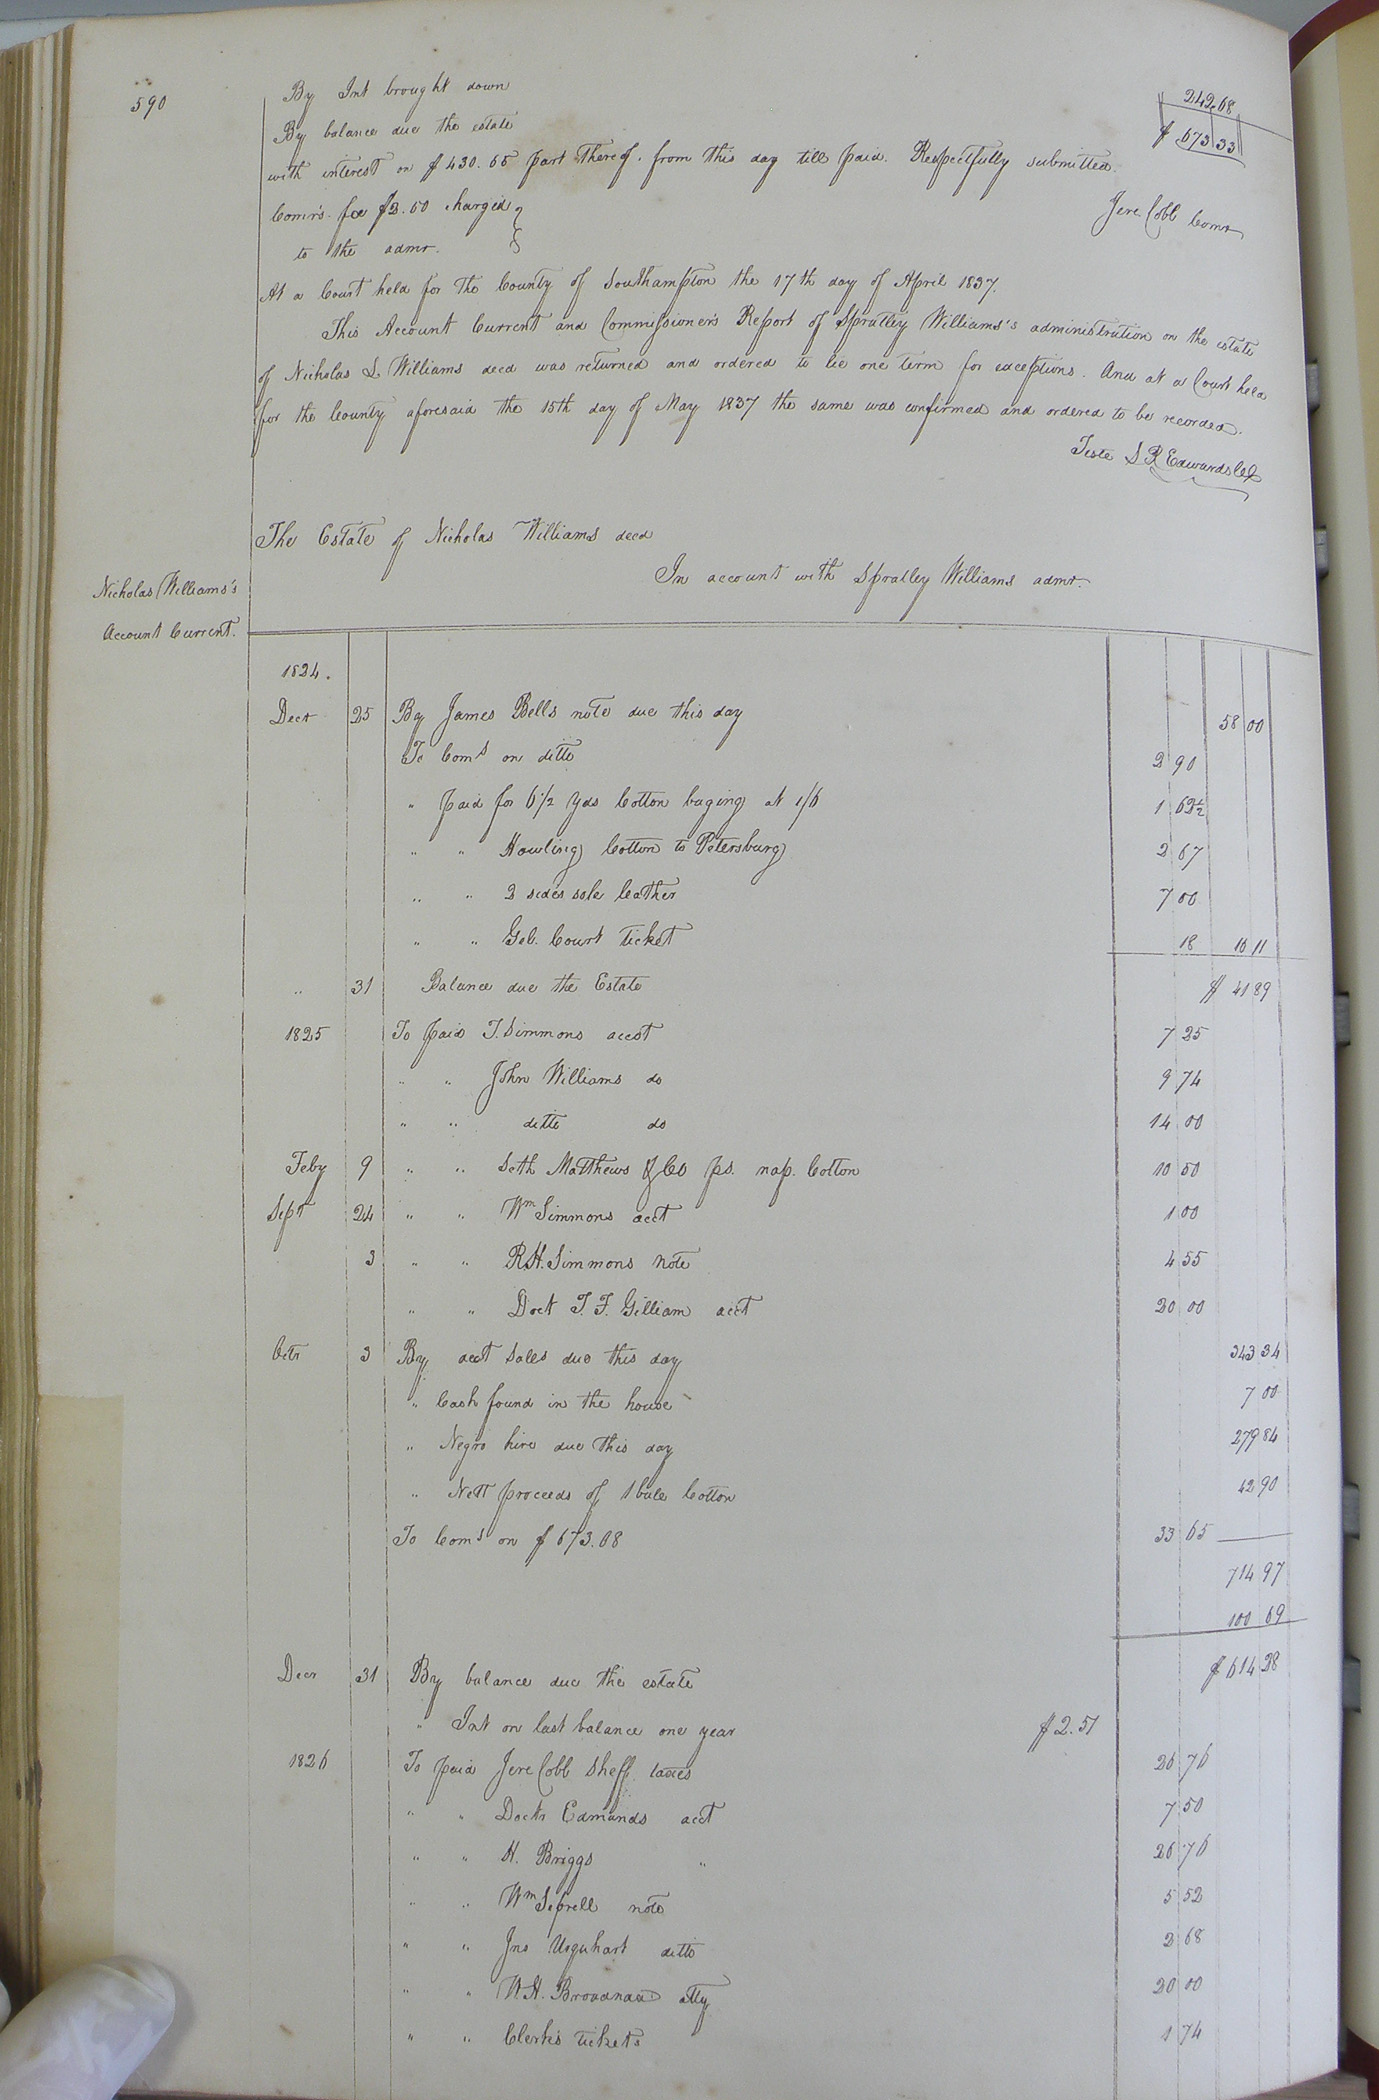 590
By Int brought down 242.68
By balance due the estate $673 33
with interest on $430.65 part thereof. from this day till paid. Respectfully submitted.
Comr's. fee $3.50 charged Jere Cobb Comr
to the admr.
At a Court held for the County of Southampton the 17th day of April 1837.
This Account Current and Commissioner's Report of Spratley Williams's administration on the estate
of Nicholas L. Williams decd was returned and ordered to lie one term for exceptions. And at a Court held
for the County aforesaid the 15th day of May 1837 the same was confirmed and ordered to be recorded.
Teste L R Edwards Clk
The Estate of Nicholas Williams decd
In account with Spratley Williams admr.
Nicholas Williams's
Account Current.
1824.
Decr 25 By James Bells note due this day 58 00
To Coms on ditto 2 90
" paid for 6 1/2 yds Cotton baging at 1/6 1 62½
" " Howling Cotton to Petersburg 2 67
" " 2 sides sole leather 7 00
" " Geb. Court ticket 18 16 11
" 31 Balance due the Estate $ 41 89
1825 To paid T. Simmons accot 7 25
" " John Williams do 9 74
" " ditto do 14 00
Feby 9 " " Seth Matthews & Co ps. nap. Cotton 10 50
Sept 24 " " Wm Simmons acct 1 00
3 " " R.H. Simmons note 4 55
" " Doct T. F. Gilliam acct 20 00
Octr 3 By acct Sales due this day 343 34
" Cash found in the house 7 00
" Negro hire due this day 279 84
" Nett proceeds of 1 bale Cotton 42 90
To Coms on $673.08 33 65
714 97
100 69
Decr 31 By balance due the estate $ 614 28
" Int on last balance one year $2.51
1826 To paid Jere Cobb Sheff taxes 26 76
" " Doctr Edmunds acct 7 50
" " H. Briggs " 26 76
" " Wm Seprell note 5 52
" " Jno Urquhart ditto 2 68
" " W.H. Broadnax atty 20 00
" " Clerk's tickets 1 74